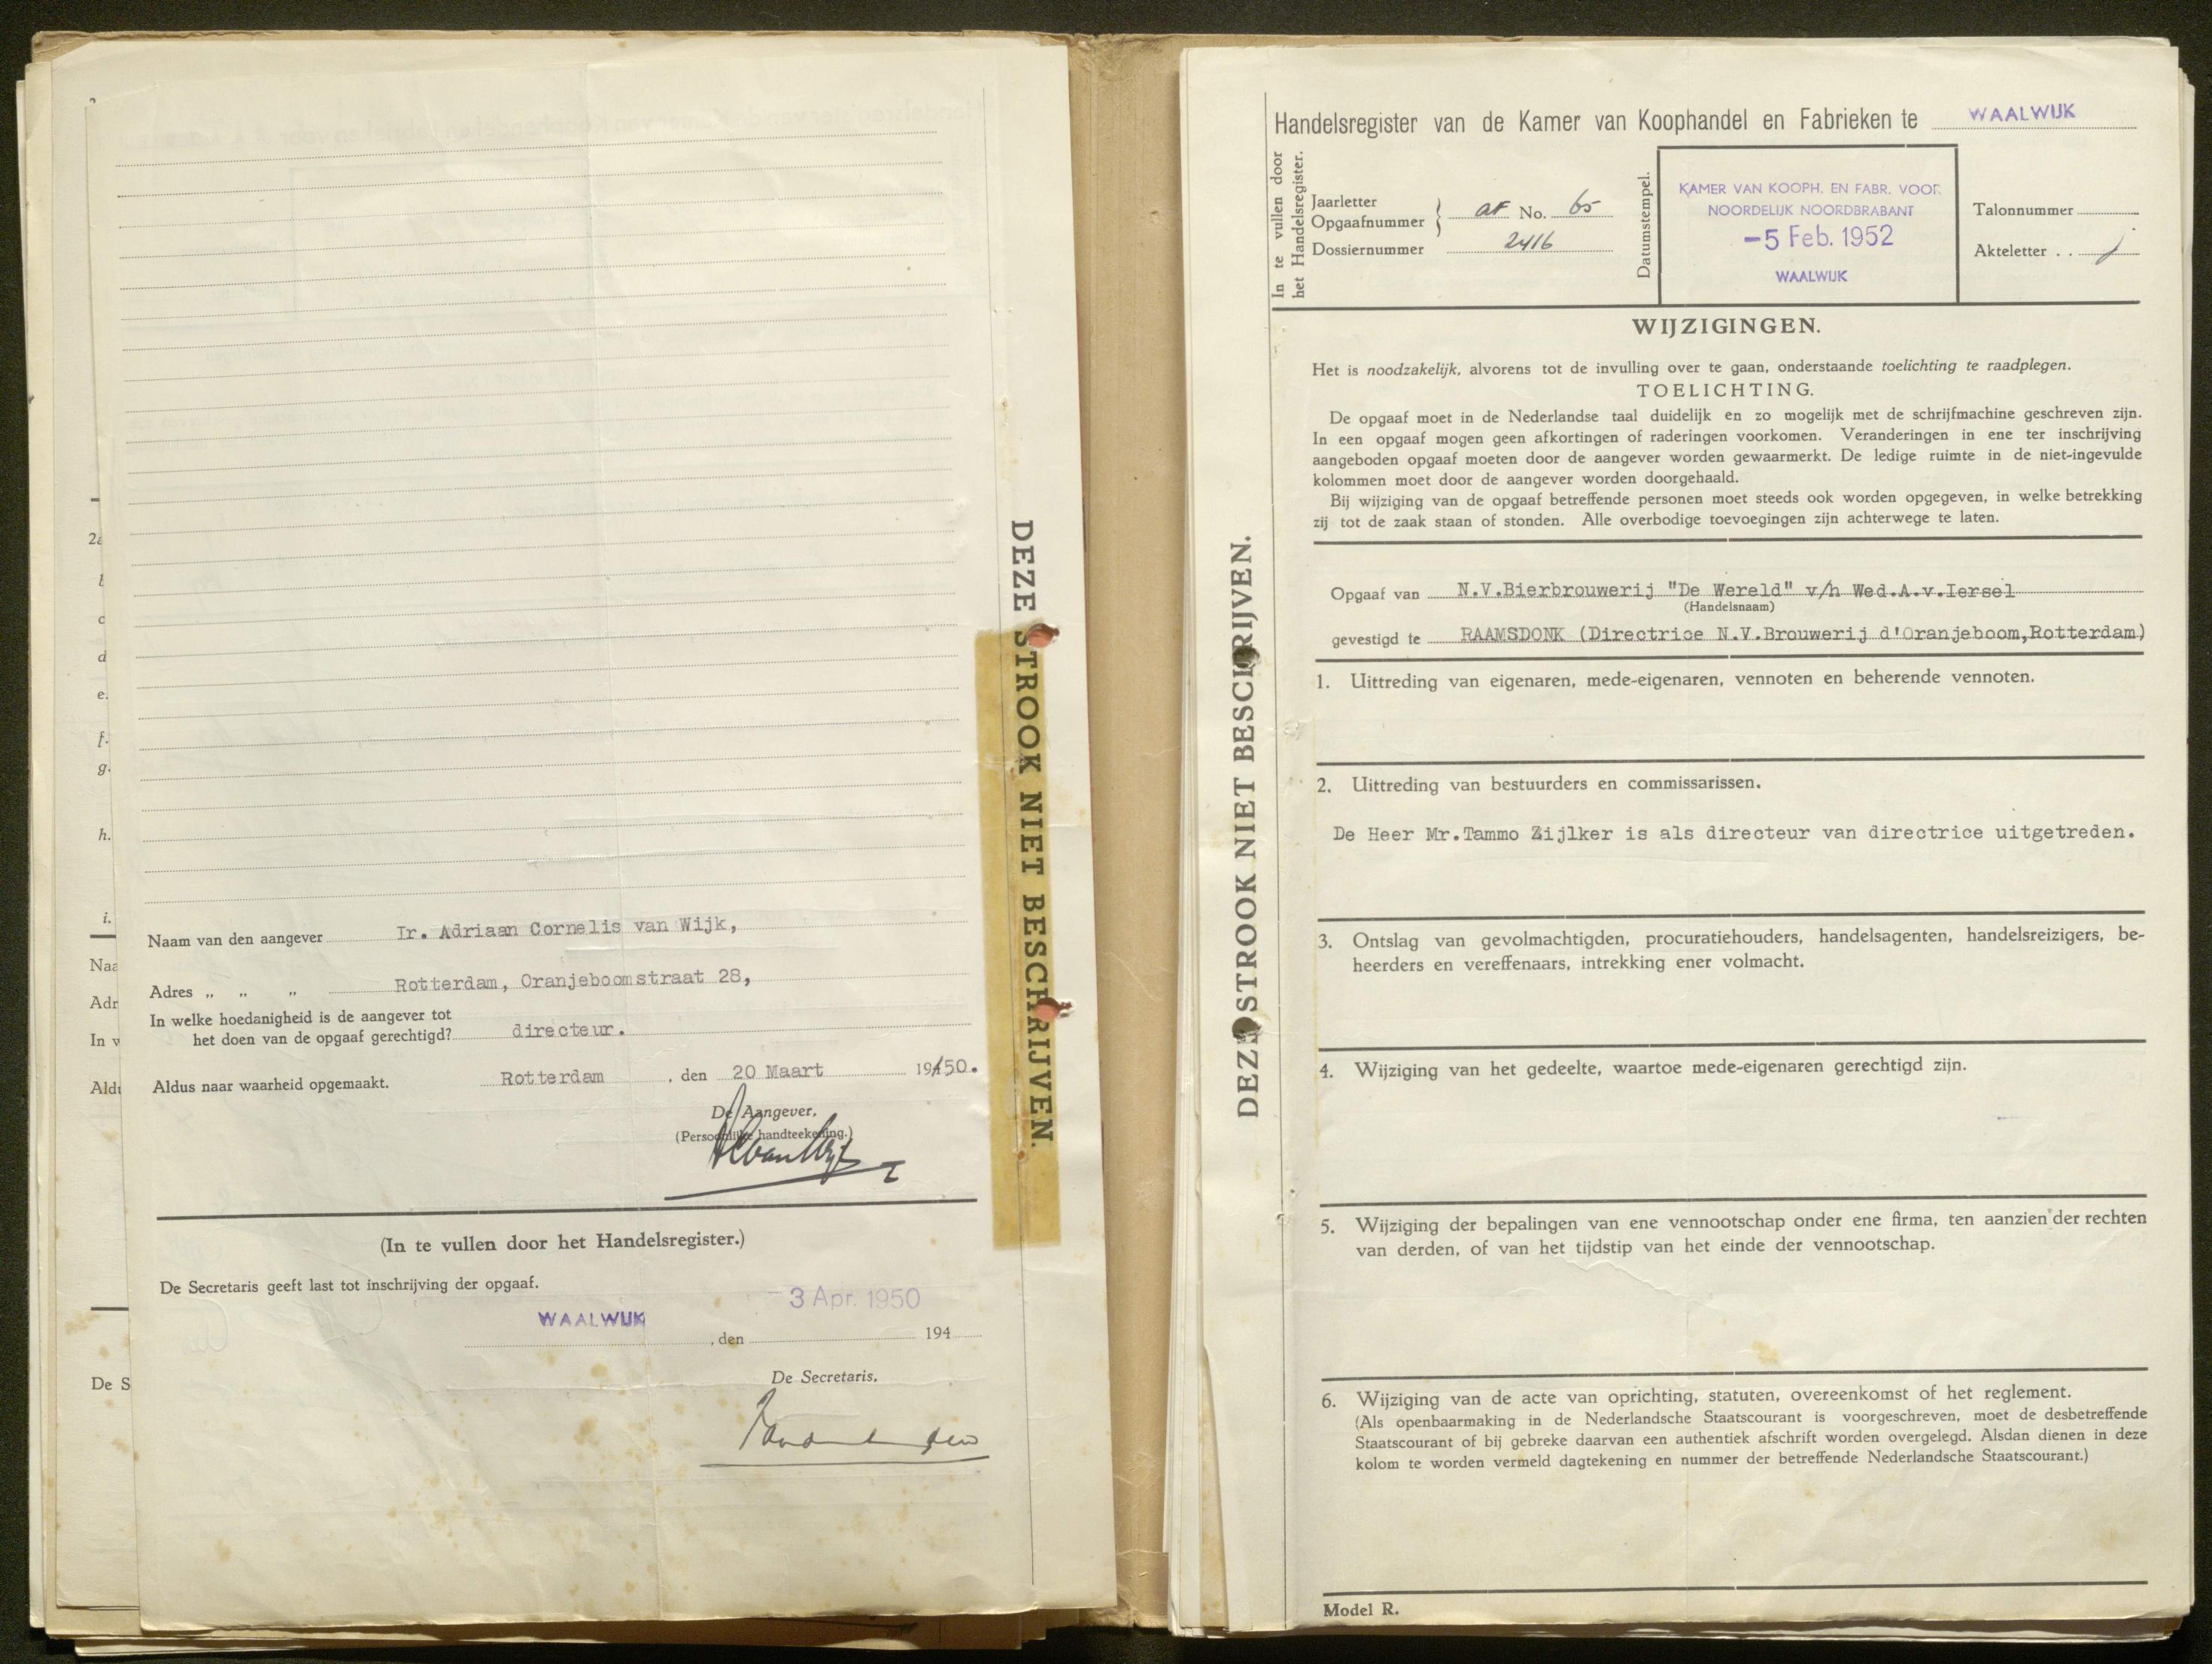 2a
b
c
d
e.
f.
g.
h.
i.
Naa
Adr
In w
Aldu
De S
Naam van den aangever Ir. Adriaan Cornelis van Wijk,
Adres „ „ „ Rotterdam, Oranjeboomstraat 28,
In welke hoedanigheid is de aangever tot
het doen van de opgaaf gerechtigd? directeur.
Aldus naar waarheid opgemaakt. Rotterdam , den 20 Maart 1950.
De Aangever,
(Persoonlijke handteekening.)
ACvanWijk
(In te vullen door het Handelsregister.)
De Secretaris geeft last tot inschrijving der opgaaf.
WAALWIJK , den -3 Apr. 1950 194
De Secretaris,
DEZE STROOK NIET BESCHRIJVEN.
DEZE STROOK NIET BESCHRIJVEN.
Handelsregister van de Kamer van Koophandel en Fabrieken te WAALWIJK
In te vullen door
het Handelsregister.
Jaarletter
Opgaafnummer } af No. 65
Dossiernummer 2416
Datumstempel.
KAMER VAN KOOPH. EN FABR. VOOR
NOORDELIJK NOORDBRABANT
-5 Feb. 1952
WAALWIJK
Talonnummer
Akteletter . . j
WIJZIGINGEN.
Het is noodzakelijk, alvorens tot de invulling over te gaan, onderstaande toelichting te raadplegen.
TOELICHTING.
De opgaaf moet in de Nederlandse taal duidelijk en zo mogelijk met de schrijfmachine geschreven zijn.
In een opgaaf mogen geen afkortingen of raderingen voorkomen. Veranderingen in ene ter inschrijving
aangeboden opgaaf moeten door de aangever worden gewaarmerkt. De ledige ruimte in de niet-ingevulde
kolommen moet door de aangever worden doorgehaald.
Bij wijziging van de opgaaf betreffende personen moet steeds ook worden opgegeven, in welke betrekking
zij tot de zaak staan of stonden. Alle overbodige toevoegingen zijn achterwege te laten.
Opgaaf van N.V.Bierbrouwerij "De Wereld" v/h Wed.A.v.Iersel
(Handelsnaam)
gevestigd te RAAMSDONK (Directrice N.V.Brouwerij d'Oranjeboom,Rotterdam)
1. Uittreding van eigenaren, mede-eigenaren, vennoten en beherende vennoten.
2. Uittreding van bestuurders en commissarissen.
De Heer Mr.Tammo Zijlker is als directeur van directrice uitgetreden.
3. Ontslag van gevolmachtigden, procuratiehouders, handelsagenten, handelsreizigers, be-
heerders en vereffenaars, intrekking ener volmacht.
4. Wijziging van het gedeelte, waartoe mede-eigenaren gerechtigd zijn.
5. Wijziging der bepalingen van ene vennootschap onder ene firma, ten aanzien der rechten
van derden, of van het tijdstip van het einde der vennootschap.
6. Wijziging van de acte van oprichting, statuten, overeenkomst of het reglement.
(Als openbaarmaking in de Nederlandsche Staatscourant is voorgeschreven, moet de desbetreffende
Staatscourant of bij gebreke daarvan een authentiek afschrift worden overgelegd. Alsdan dienen in deze
kolom te worden vermeld dagtekening en nummer der betreffende Nederlandsche Staatscourant.)
Model R.